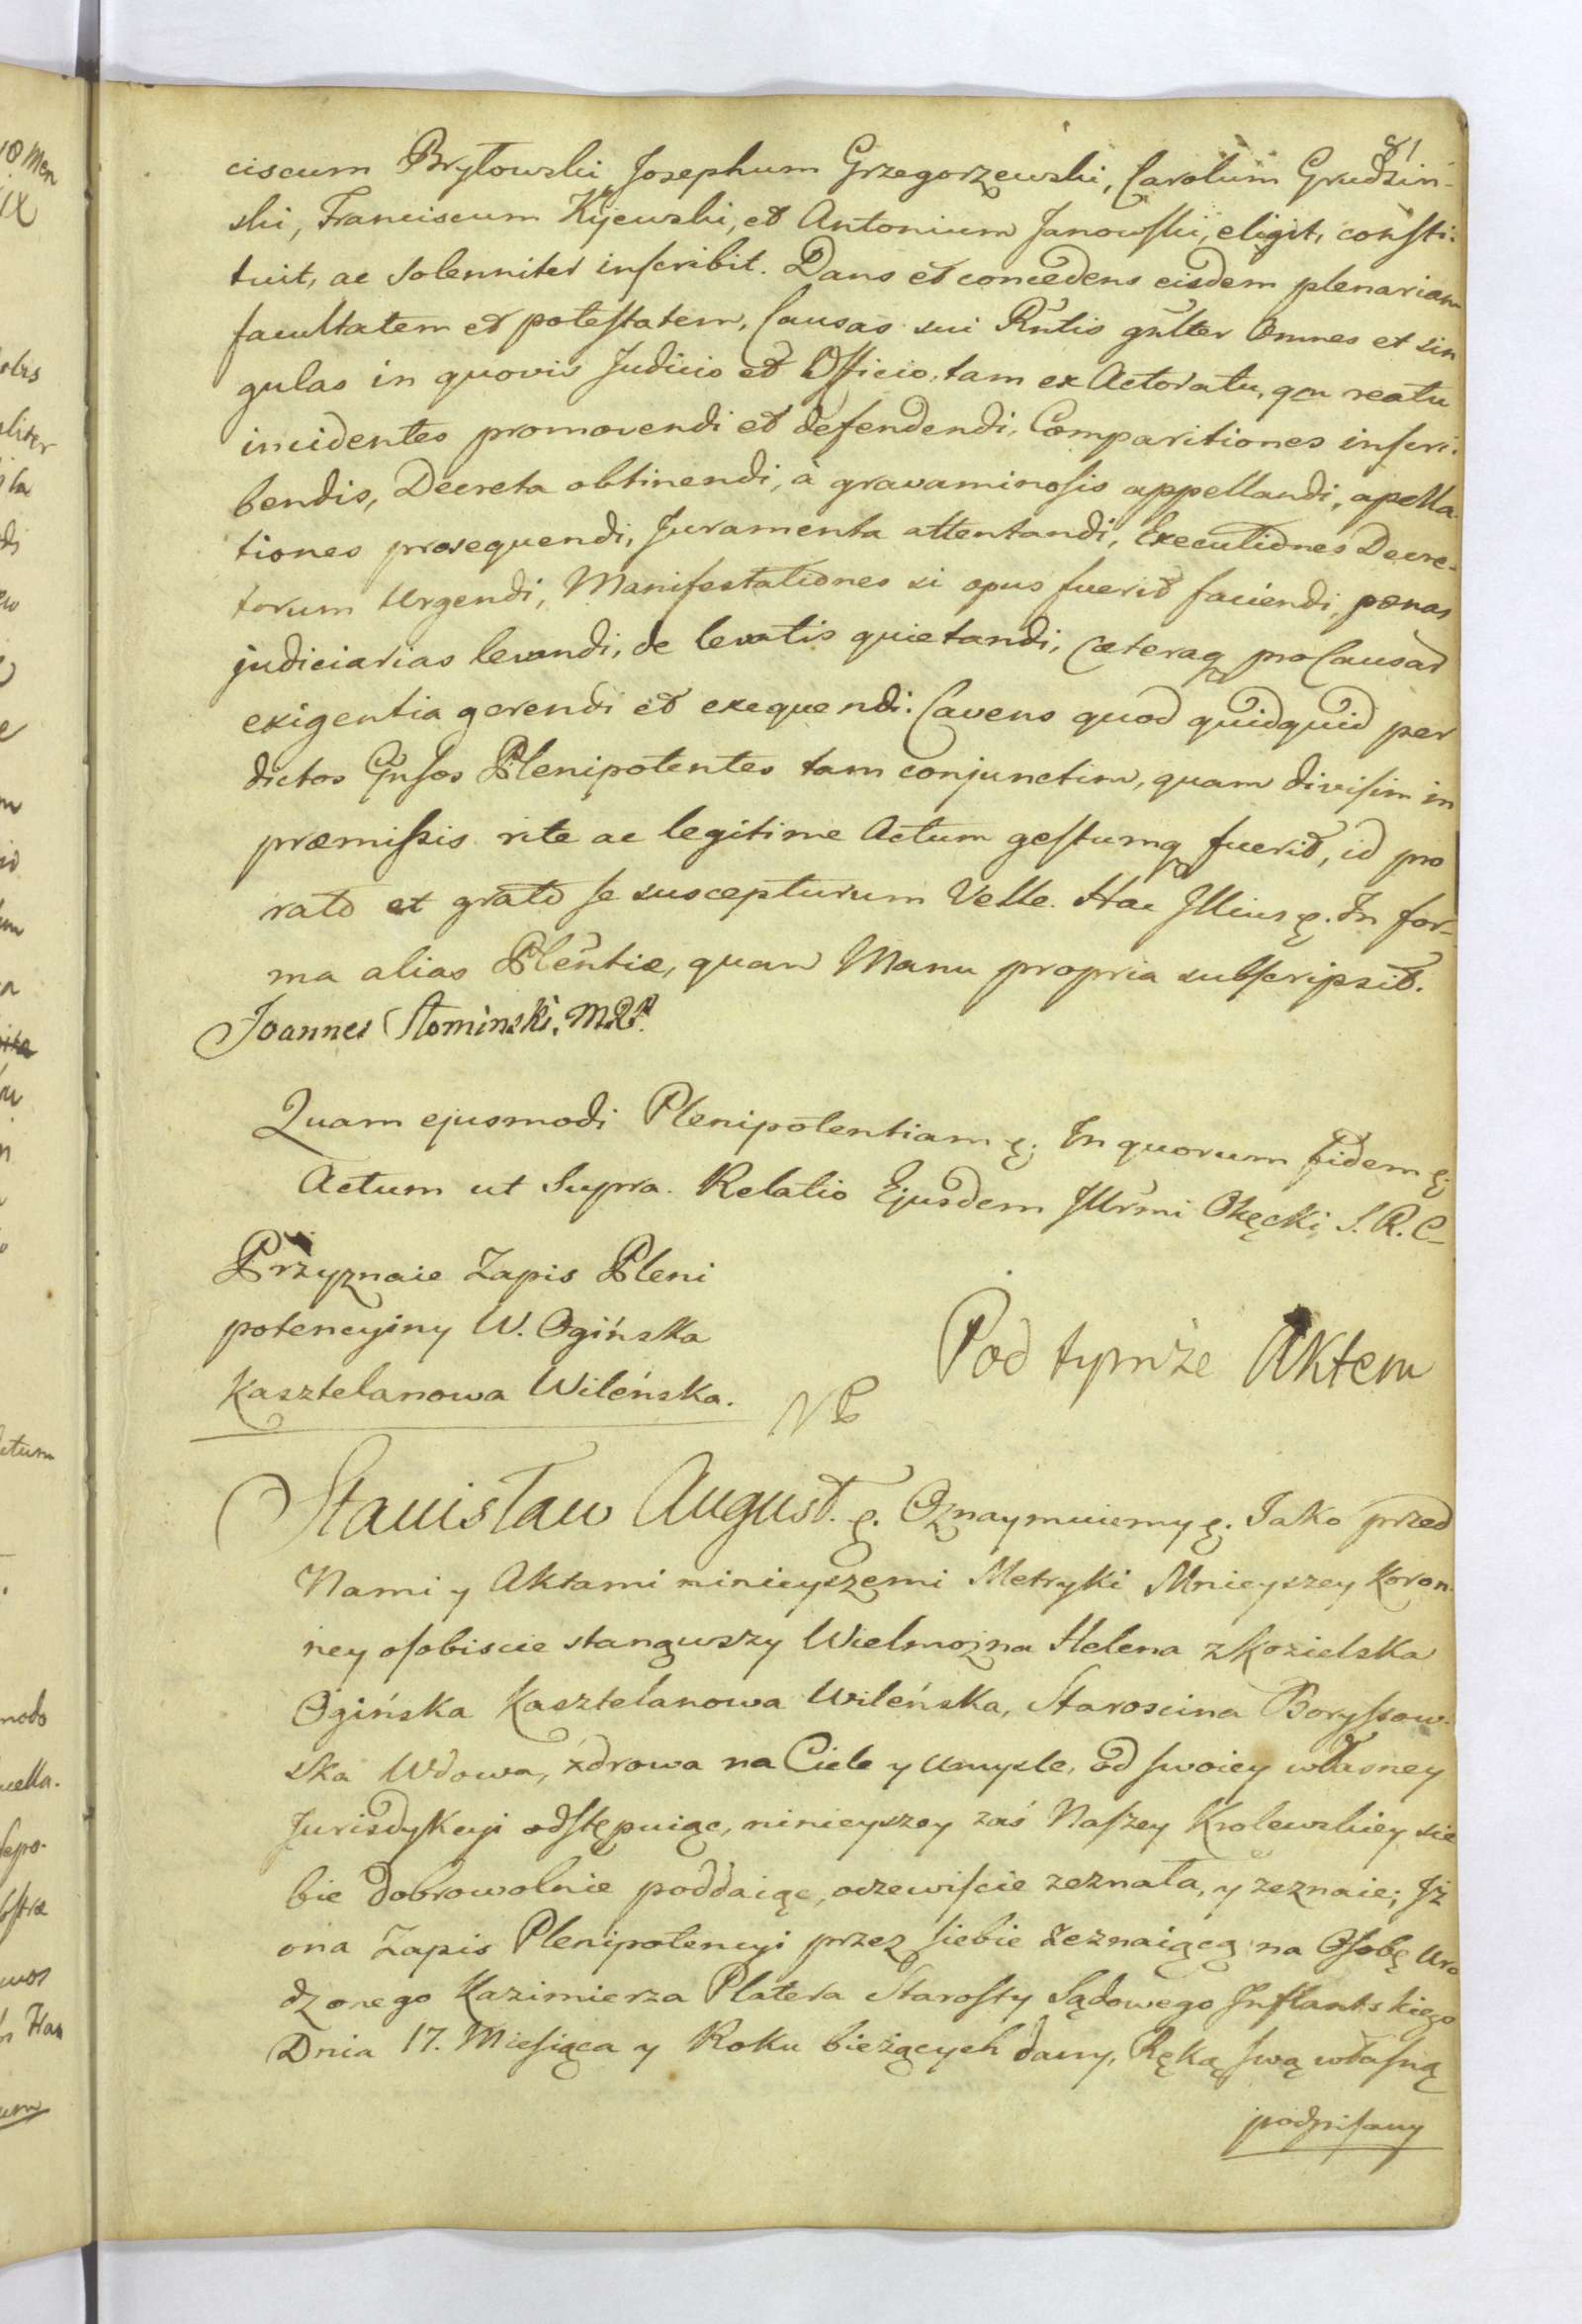 81
ciscum Bryłowski Josephum Grzegorzewski, Carolum Grudzin-
ski, Franciscum Kijewski, et Antonium Janowski, eligit, consti-
tuit, ac Solenniter inscribit. Dans et concedens eisdem plenariam
facultatem et potestatem, Causas sui Rntis gnlter Omnes et sin
gulas in quovis Judicio et Officio, tam ex Actoratu, qm reatu
incidentes promovendi et defendendi, Comparitiones inscri-
bendis, Decreta obtinendi, à gravaminosis appellandi, apella-
tiones prosequendi, Juramenta attentandi, Executiones Decre-
torum Urgendi, Manifestationes si opus fuerit faciendi, pœnas
judiciarias levandi, de levatis quietandi, Cæteraq pro Causar
exigentia gerendi et exequendi. Cavens quod quidquid per
dictos Gnsos Plenipotentes tam conjunctim, quam divisim in
præmissis rite ac legitime Actum gestumq fuerit, id pro
rato et grato se suscepturum Velle. Hac Illius ę. In for-
ma alias Plentiæ, quam Manu propria subscripsit.
Joannes Słominski, mpp.
Quam ejusmodi Plenipotentiam ę; In quorum fidem ę;
Actum ut Supra. Relatio Ejusdem Illrmi Okęcki, S. R. C-
Przyznaie Zapis Pleni
potencyiny W. Ogińska
Kasztelanowa Wileńska.
NB
Pod tymże Aktem
Stanisław August. ę. Oznaymuiemy ę. Jako przed
Nami y Aktami ninieyszemi Metryki Mnieyszey Koron-
ney osobiscie stanąwszy Wielmożna Helena z Kozielska
Ogińska Kasztelanowa Wileńska, Staroscina Boryssow-
ska Wdowa, zdrowa na Ciele y Umysle, od swoiey własney
Jurisdykcyi odstępuiąc, ninieyszey zaś Naszey Krolewskiey sie
bie dobrowolnie poddaiąc, oczewiście zeznała, y zeznaie; Jż
ona Zapis Plenipotencyi przez siebie zeznaiącą na Osobę Uro
dzonego Kazimierza Platera Starosty Sądowego Inflantskiego
Dnia 17. Miesiąca y Roku bieżących dany, Ręką swą własną
podpisany